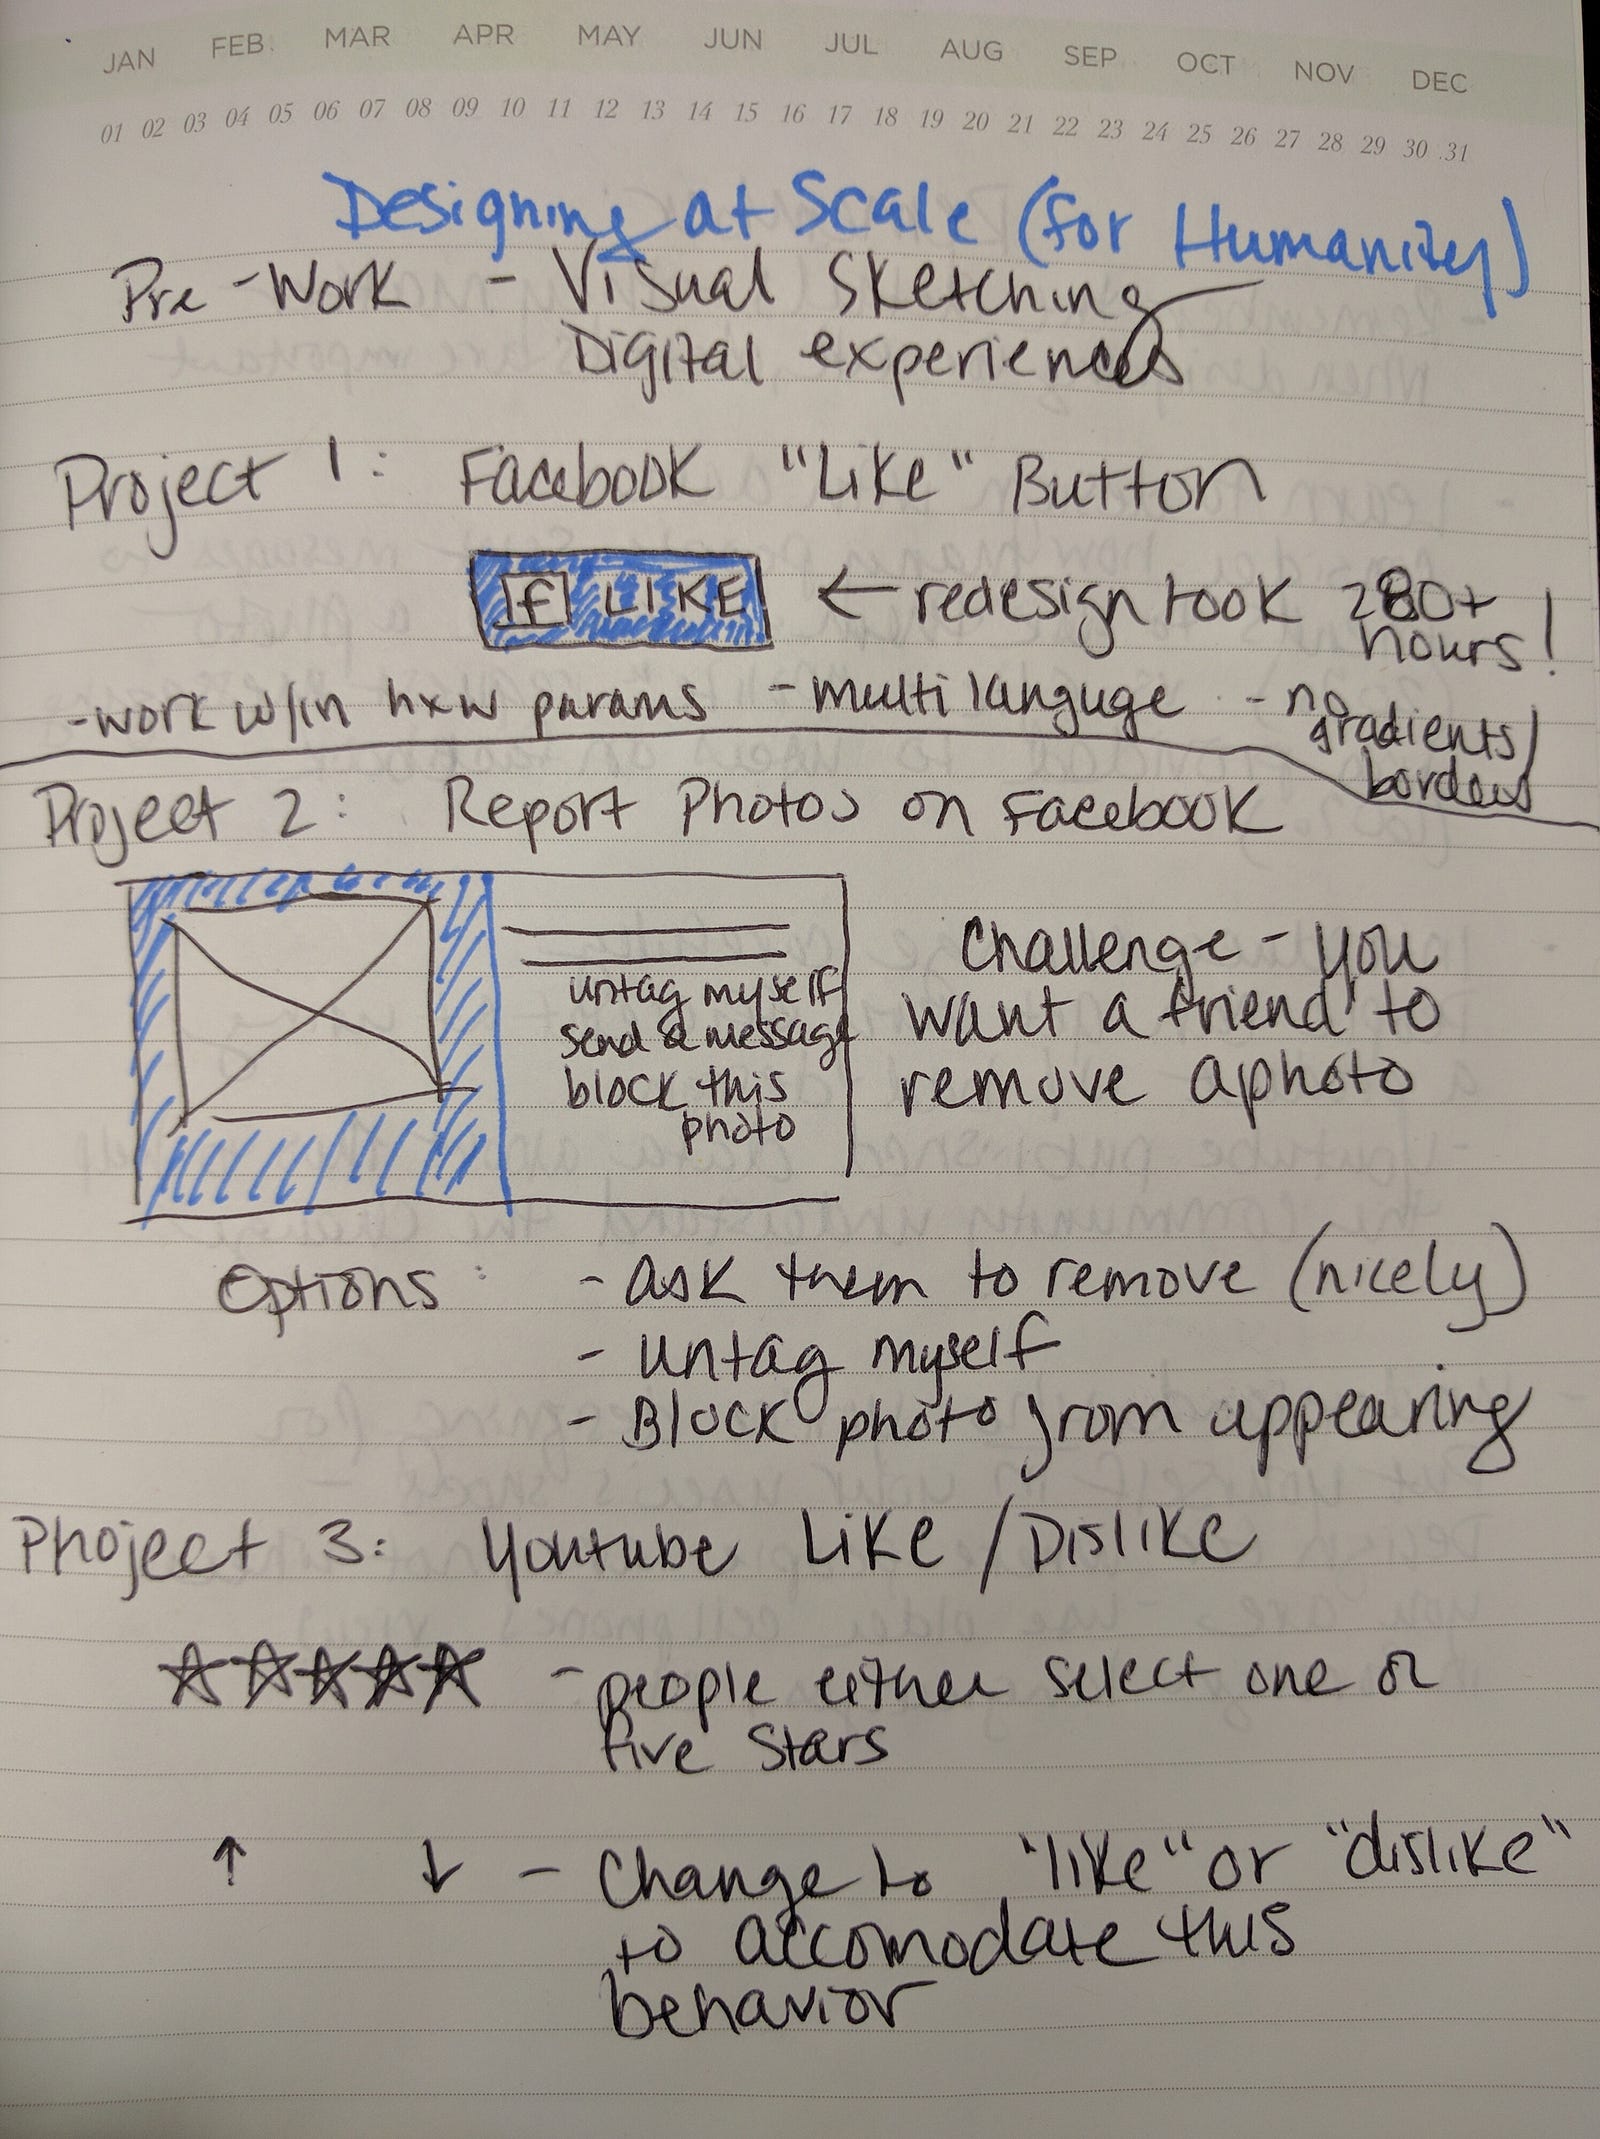 JAN FEB. MAR APR MAY JUN JUL AUG SEP OCT NOV DEC
01 02 03 04 05 06 07 08 09 10 11 12 13 14 15 16 17 18 19 20 21 22 23 24 25 26 27 28 29 30 31
Designing at Scale (for Humanity)
Pre-Work - Visual Sketching
Digital experiences
Project 1: Facebook "Like" Button
f LIKE ← redesign took 280+
hours!
-work w/in hxw params - multi languge - no
gradients/
borders
Project 2: Report Photos on Facebook
untag myself
send a message
block this
photo
Challenge - you
want a friend to
remove a photo
Options: - ask them to remove (nicely)
- untag myself
- Block photo from appearing
Project 3: Youtube Like / Dislike
- people either select one or
five stars
↑ ↓ - Change to "like" or "dislike"
to accomodate this
behavior